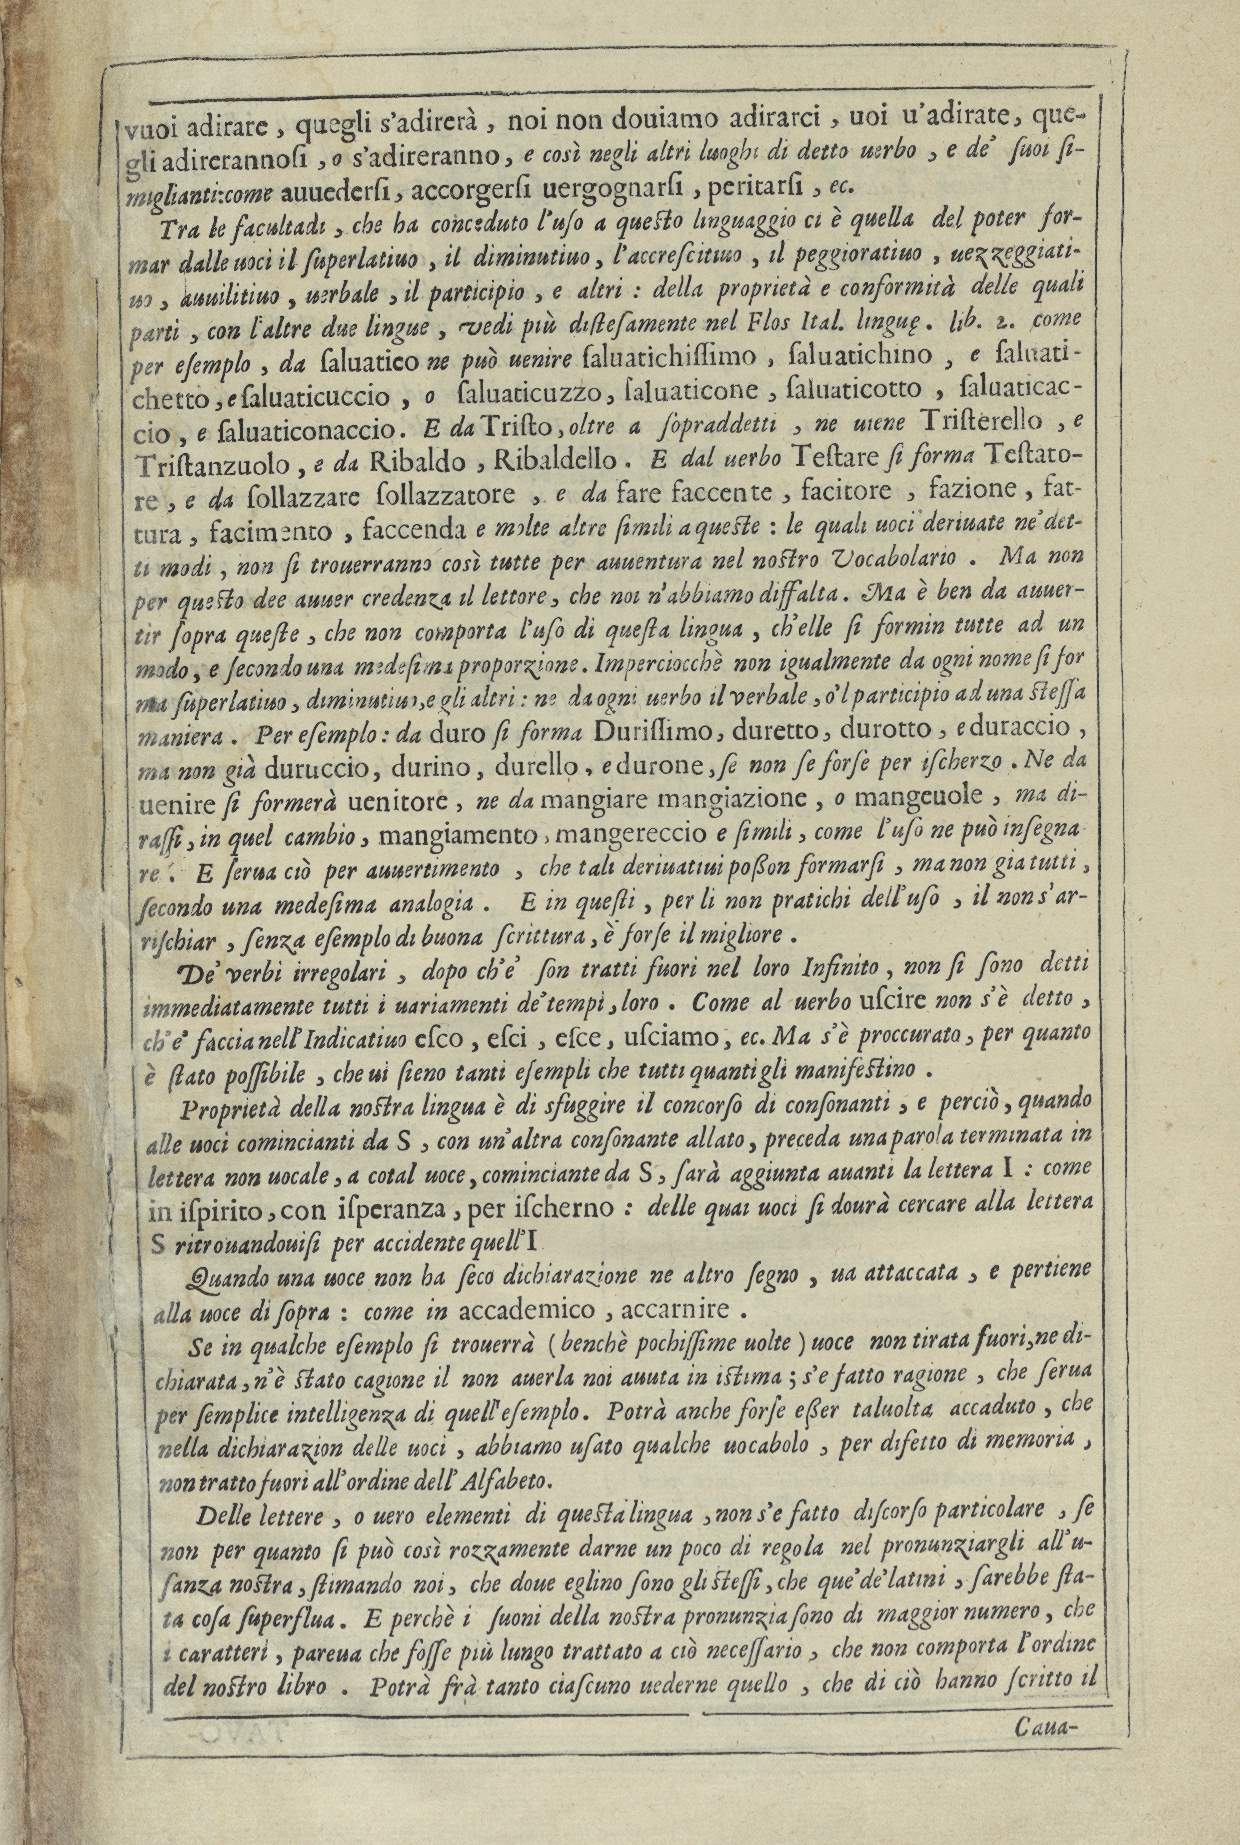 vuoi adirare, quegli s'adirerà, noi non douiamo adirarci, uoi u'adirate, que-
gli adirerannoſi, o s'adireranno, e così negli altri luoghi di detto uerbo, e de' ſuoi ſi-
miglianti: come auuederſi, accorgerſi uergognarſi, peritarſi, ec.
Tra le facultadi, che ha conceduto l'uſo a queſto linguaggio ci è quella del poter for-
mar dalle uoci il ſuperlatiuo, il diminutiuo, l'accreſcitiuo, il peggioratiuo, uezzeggiati-
uo, auuilitiuo, uerbale, il participio, e altri: della proprietà e conformità delle quali
parti, con l'altre due lingue, vedi più diſteſamente nel Flos Ital. linguę. lib. 2. come
per eſemplo, da ſaluatico ne può uenire ſaluatichiſſimo, ſaluatichino, e ſaluati-
chetto, e ſaluaticuccio, o ſaluaticuzzo, ſaluaticone, ſaluaticotto, ſaluaticac-
cio, e ſaluaticonaccio. E da Triſto, oltre a ſopraddetti, ne uiene Triſterello, e
Triſtanzuolo, e da Ribaldo, Ribaldello. E dal uerbo Teſtare ſi forma Teſtato-
re, e da ſollazzare ſollazzatore, e da fare faccente, facitore, fazione, fat-
tura, facimento, faccenda e molte altre ſimili a queſte: le quali uoci deriuate ne' det-
ti modi, non ſi trouerranno così tutte per auuentura nel noſtro Vocabolario. Ma non
per queſto dee auuer credenza il lettore, che noi n'abbiamo diffalta. Ma è ben da auuer-
tir ſopra queſte, che non comporta l'uſo di queſta lingua, ch'elle ſi formin tutte ad un
modo, e ſecondo una medeſima proporzione. Imperciocchè non igualmente da ogni nome ſi for
ma ſuperlatiuo, diminutiuo, e gli altri: ne da ogni uerbo il verbale, o'l participio ad una ſteſſa
maniera. Per eſemplo: da duro ſi forma Duriſſimo, duretto, durotto, e duraccio,
ma non già duruccio, durino, durello, e durone, ſe non ſe forſe per iſcherzo. Ne da
uenire ſi formerà uenitore, ne da mangiare mangiazione, o mangeuole, ma di-
raſſi, in quel cambio, mangiamento, mangereccio e ſimili, come l'uſo ne può inſegna
re. E ſerua ciò per auuertimento, che tali deriuatiui poßon formarſi, ma non gia tutti,
ſecondo una medeſima analogia. E in queſti, per li non pratichi dell'uſo, il non s'ar-
riſchiar, ſenza eſemplo di buona ſcrittura, è forſe il migliore.
De' verbi irregolari, dopo ch'e' ſon tratti fuori nel loro Infinito, non ſi ſono detti
immediatamente tutti i uariamenti de' tempi, loro. Come al uerbo uſcire non s'è detto,
ch'e' faccia nell'Indicatiuo eſco, eſci, eſce, uſciamo, ec. Ma s'è proccurato, per quanto
è ſtato poſſibile, che ui ſieno tanti eſempli che tutti quanti gli manifeſtino.
Proprietà della noſtra lingua è di sfuggire il concorſo di conſonanti, e perciò, quando
alle uoci comincianti da S, con un'altra conſonante allato, preceda una parola terminata in
lettera non uocale, a cotal uoce, cominciante da S, ſarà aggiunta auanti la lettera I: come
in iſpirito, con iſperanza, per iſcherno: delle quai uoci ſi dourà cercare alla lettera
S ritrouandouiſi per accidente quell'I
Quando una uoce non ha ſeco dichiarazione ne altro ſegno, ua attaccata, e pertiene
alla uoce di ſopra: come in accademico, accarnire.
Se in qualche eſemplo ſi trouerrà (benchè pochiſſime uolte) uoce non tirata fuori, ne di-
chiarata, n'è ſtato cagione il non auerla noi auuta in iſtima; s'e fatto ragione, che ſerua
per ſemplice intelligenza di quell'eſemplo. Potrà anche forſe eßer taluolta accaduto, che
nella dichiarazion delle uoci, abbiamo uſato qualche uocabolo, per difetto di memoria,
non tratto fuori all'ordine dell'Alfabeto.
Delle lettere, o uero elementi di queſta lingua, non s'e fatto diſcorſo particolare, ſe
non per quanto ſi può così rozzamente darne un poco di regola nel pronunziargli all'u-
ſanza noſtra, ſtimando noi, che doue eglino ſono gli ſteſſi, che que' de' latini, ſarebbe ſta-
ta coſa ſuperflua. E perchè i ſuoni della noſtra pronunzia ſono di maggior numero, che
i caratteri, pareua che foſſe più lungo trattato a ciò neceſſario, che non comporta l'ordine
del noſtro libro. Potrà frà tanto ciaſcuno uederne quello, che di ciò hanno ſcritto il
Caua-